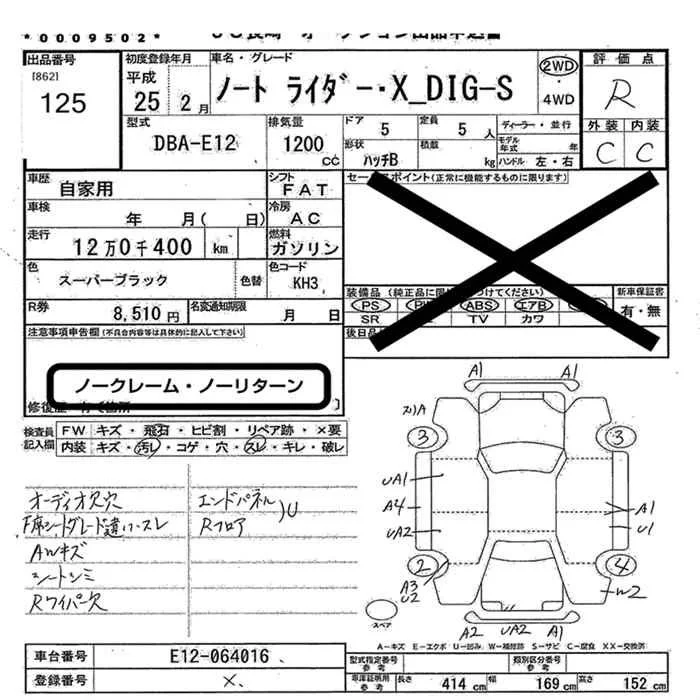 *0009502*
出品番号
[862]
125
初度登録年月
平成
25 2月
車名・グレード
ノート ライダー・X_DIG-S
2WD
・
4WD
評価点
R
外装 内装
C C
型式
DBA-E12
排気量
1200
cc
ドア
5
定員
5 人
ディーラー・並行
形状
ハッチB
積載
kg
モデル年式 年
ハンドル 左・右
車歴
自家用
シフト
FAT
車検
年 月( 日)
冷房
AC
走行
12万0千400 km
燃料
ガソリン
色
スーパーブラック
色替
色コード
KH3
R券
8,510円
名変通知期限
月 日
セールスポイント(正常に機能するものに限ります)
新車保証書
有・無
PS ABS エアB
SR TV カワ
注意事項申告欄(不具合内容等は具体的に記入して下さい)
ノークレーム・ノーリターン
検査員記入欄
FW キズ・飛石・ヒビ割・リペア跡・×要
内装 キズ・汚レ・コゲ・穴・スレ・キレ・破レ
オーディオ欠穴
F席シートグレード違い・スレ
AWキズ
シートシミ
Rワイパー欠
エンドパネル
Rフロア
)U
A1 A1
3 3
UA1
A4
UA2
A1
U1
2 4
A3
U2
W2
スペア
A2 UA2 A1
A-キズ E-エクボ U-凹み W-補修跡 S-サビ C-腐食 XX-交換済
車台番号
E12-064016
登録番号
×
型式指定番号
参考
類別区分番号
参考
車庫証明用
参考
長さ 414 cm
幅 169 cm
高さ 152 cm